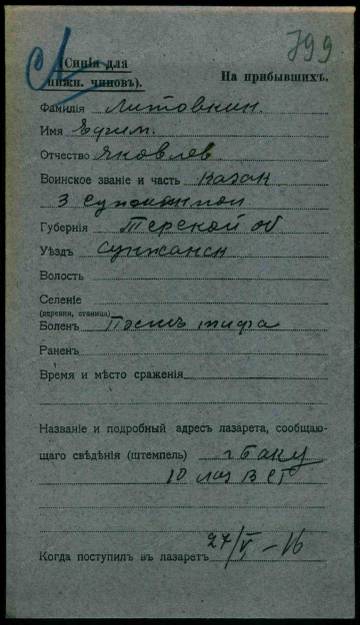 799
(Синія для
нижн. чиновъ).
На прибывшихъ.
Фамилія Литовкин.
Имя Ефим.
Отчество Яковлев
Воинское званіе и часть казак
3
Губернія Терской об
Уѣздъ Сунжанск
Волость
Селеніе
(деревня, станица)
Боленъ После тифа
Раненъ
Время и мѣсто сраженія
Названіе и подробный адресъ лазарета, сообщаю-
щаго свѣдѣнія (штемпель) г Баку
10 лаз В С Г
Когда поступилъ въ лазаретъ 27/V – 16